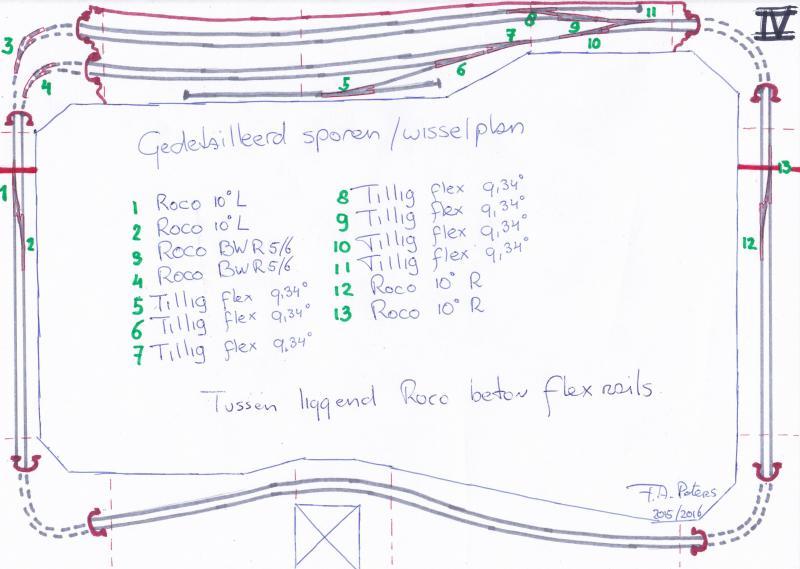 IV
3
4
5
6
7
8
9
10
11
Gedetailleerd sporen/wisselplan
1
2
13
12
1 Roco 10° L
2 Roco 10° L
3 Roco BWR 5/6
4 Roco BWR 5/6
5 Tillig flex 9,34°
6 Tillig flex 9,34°
7 Tillig flex 9,34°
8 Tillig flex 9,34°
9 Tillig flex 9,34°
10 Tillig flex 9,34°
11 Tillig flex 9,34°
12 Roco 10° R
13 Roco 10° R
Tussen liggend Roco beton flexrails
F.A. Peters
2015/2016